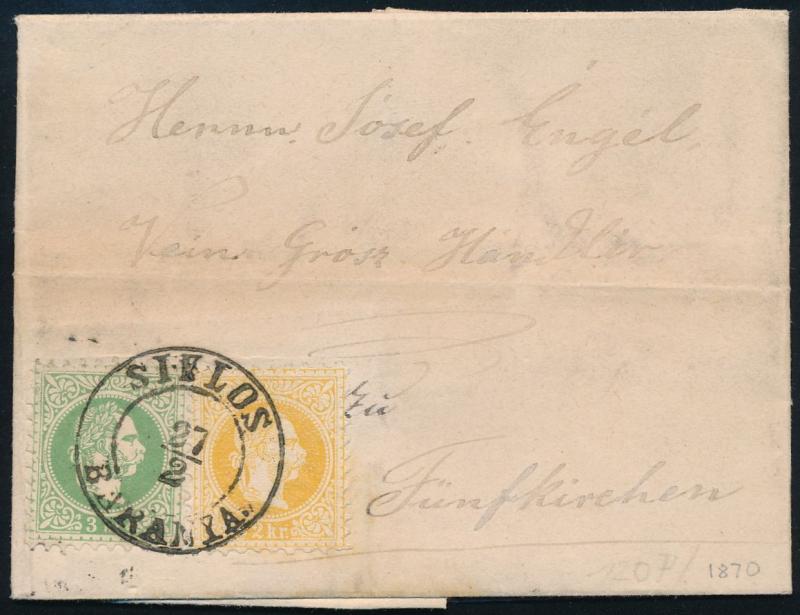 Herrnn. Jósef. Engél,
Vein Grósz. Händler
zu
Fünfkirchen
SIKLOS
27
2/2
BARANIA
3
2 kr.
1870